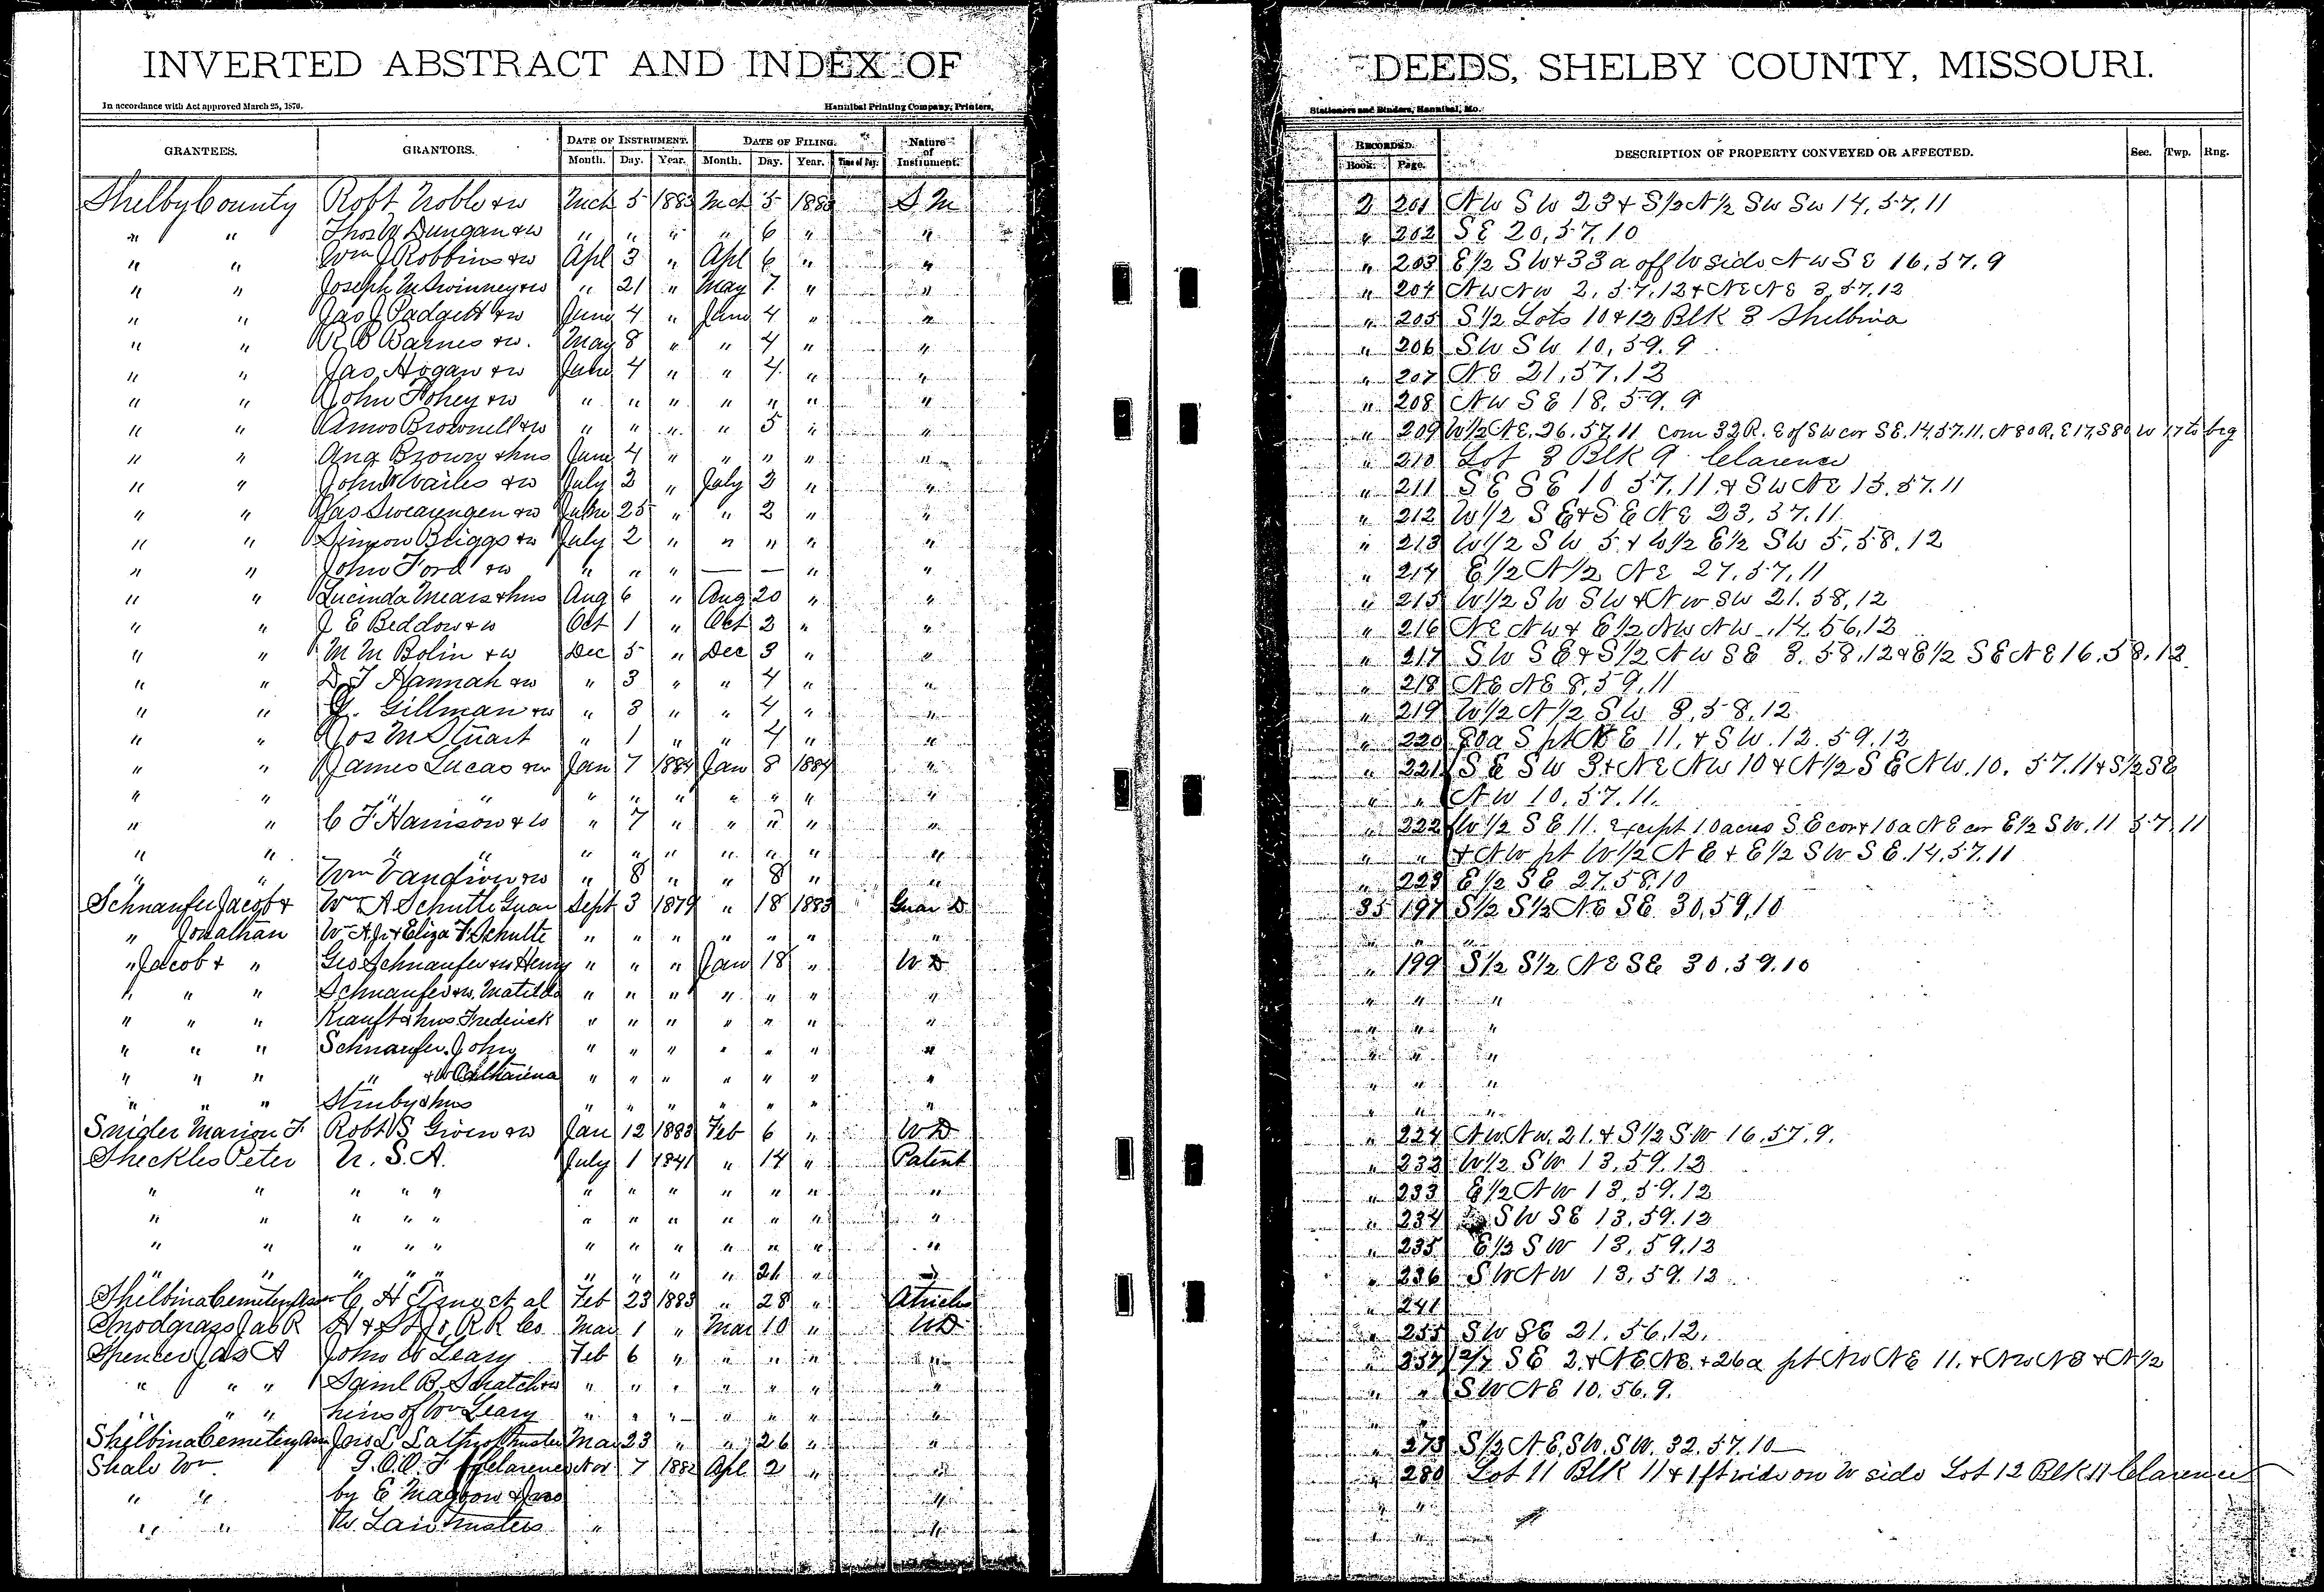 INVERTED ABSTRACT AND INDEX OF DEEDS, SHELBY COUNTY, MISSOURI.
In accordance with Act approved March 25, 1876. Hannibal Printing Company, Printers, Stationers and Binders, Hannibal, Mo.
GRANTEES. GRANTORS. DATE OF INSTRUMENT. DATE OF FILING. Nature of Instrument. RECORDED. DESCRIPTION OF PROPERTY CONVEYED OR AFFECTED. Sec. Twp. Rng.
Month. Day. Year. Month. Day. Year. Time of Day. Book. Page.
Shelby County Robt Noble & w Mch 5 1883 Mch 5 1883 S. M 2 201 NW SW 23 & S½ N½ SW SW 14, 57, 11
" " Thos W Dungan & w " " " " 6 " " " 202 SE 20, 57, 10
" " Wm J Robbins & w Apl 3 " Apl 6 " " " 203 E½ SW & 33 a off W side NW SE 16, 57, 9
" " Joseph M Swinney & w " 21 " May 7 " " " 204 NW NW 2, 57, 12 & NE NE 3, 57, 12
" " Jas J Padgett & w June 4 " June 4 " " " 205 S½ Lots 10 & 12 Blk 3 Shelbina
" " R B Barnes & w. May 8 " " 4 " " " 206 SW SW 10, 59, 9
" " Jas Hogan & w June 4 " " 4 " " " 207 NE 21, 57, 12
" " John Fohey & w " " " " " " " " 208 NW SE 18, 59, 9
" " Amos Brownell & w " " " " 5 " " " 209 W½ NE, 26, 57, 11 com 32 R. E of SW cor SE. 14, 57, 11, N 80 R, E 17, S 80 W 17 to beg
" " Ang Brown & hus June 4 " " " " " " 210 Lot 3 Blk 9 Clarence
" " John W Wailes & w July 2 " July 2 " " " 211 SE SE 10 57, 11 & SW NE 15, 57, 11
" " Jas Swearengen & w June 25 " " 2 " " " 212 W½ SE & SE NE 23, 57, 11
" " Simeon Briggs & w July 2 " " " " " " 213 W½ SW 5 & W½ E½ SW 5, 58, 12
" " John Ford & w " " " — — " " " 214 E½ N½ NE 27, 57, 11
" " Lucinda Mears & hus Aug 6 " Aug 20 " " " 215 W½ SW SW & NW SW 21, 58, 12
" " J E Beddow & w Oct 1 " Oct 2 " " " 216 NE NW & E½ NW NW 14, 56, 12
" " M M Bolin & w Dec 5 " Dec 3 " " " 217 SW SE & S½ NW SE 3, 58, 12 & E½ SE NE 16, 58, 12
" " D T Hannah & w " 3 " " 4 " " " 218 NE NE 8, 59, 11
" " G. Gillman & w " 3 " " 4 " " " 219 W½ N½ SW 8, 58, 12
" " Jos M Stuart " 1 " " 4 " " " 220 80 a S pt NE 11, & SW. 12. 59, 12
" " James Lucas & w Jan 7 1884 Jan 8 1884 " " 221 SE SW 3 & NE NW 10 & N½ SE NW. 10. 57, 11 & S½ SE
" " " " " " " " " " " " " NW 10, 57, 11.
" " C F Harrison & w " 7 " " " " " " 222 W½ SE 11. Except 10 acres SE cor & 10 a NE cor E½ SW. 11 57, 11
" " " " " " " " " " " " " & NW pt W½ NE & E½ SW SE. 14, 57, 11
" " Wm Vandiver & w " 8 " " 8 " " " 223 E½ SE 27, 58, 10
Schnaufer Jacob & Wm A Schutte Guar Sept 3 1879 " 18 1883 Guar D. 35 197 S½ S½ NE SE 30, 59, 10
" Jonathan Wm A Jr & Eliza F Schutte " " " " " " " " "
" Jacob & " Geo Schnaufer & w Henry " " " Jan 18 " W D " 199 S½ S½ NE SE 30, 59, 10
" " " Schnaufer & w, Matilda " " " " " " " " " "
" " " Krauft & hus Frederick " " " " " " " " " "
" " " Schnaufer, John " " " " " " " " " "
" " " " & w Catharina " " " " " " " " " "
" " " Struby & hus " " " " " " " " " "
Snider Marion F Robt S Given & w Jan 12 1883 Feb 6 " W D " 224 NW NW. 21. & S½ SW 16, 57, 9.
Sheckles Peter U. S. A. July 1 1841 " 14 " Patent " 232 W½ SW 13, 59, 12
" " " " " " " " " " " " " 233 E½ NW 13, 59, 12
" " " " " " " " " " " " " 234 SW SE 13, 59, 12
" " " " " " " " " " " " " 235 E½ SW 13, 59, 12
" " " " " " " " " 26 " " " 236 SW NW 13, 59, 12
Shelbina Cemetery Assn C H et al Feb 23 1883 " 28 " " 241
Snodgrass Jas R H & St Jo R R Co Mar 1 " Mar 10 " W D " 255 SW SE 21, 56, 12.
Spencer Jas A John W Leary Feb 6 " " " " " " 257 2/7 SE 2. & NE NE. & 26 a pt NW NE 11. & NW NE & N½
" " " Saml B. & w " " " " " " " " " SW NE 10. 56. 9.
" " " heirs of Wm Leary " " " " " " "
Shelbina Cemetery Assn Jno L Lathrop trustee Mar 23 " " 26 " " " 273 S½ NE, SW, SW. 32, 57, 10
Shale Wm I. O. O. F of Clarence Nov 7 1882 Apl 2 " " " 280 Lot 11 Blk 11 & 1 ft wide on W side Lot 12 Blk 11 Clarence
" " by E & Jno " " "
" " W. Law trustees " " " "